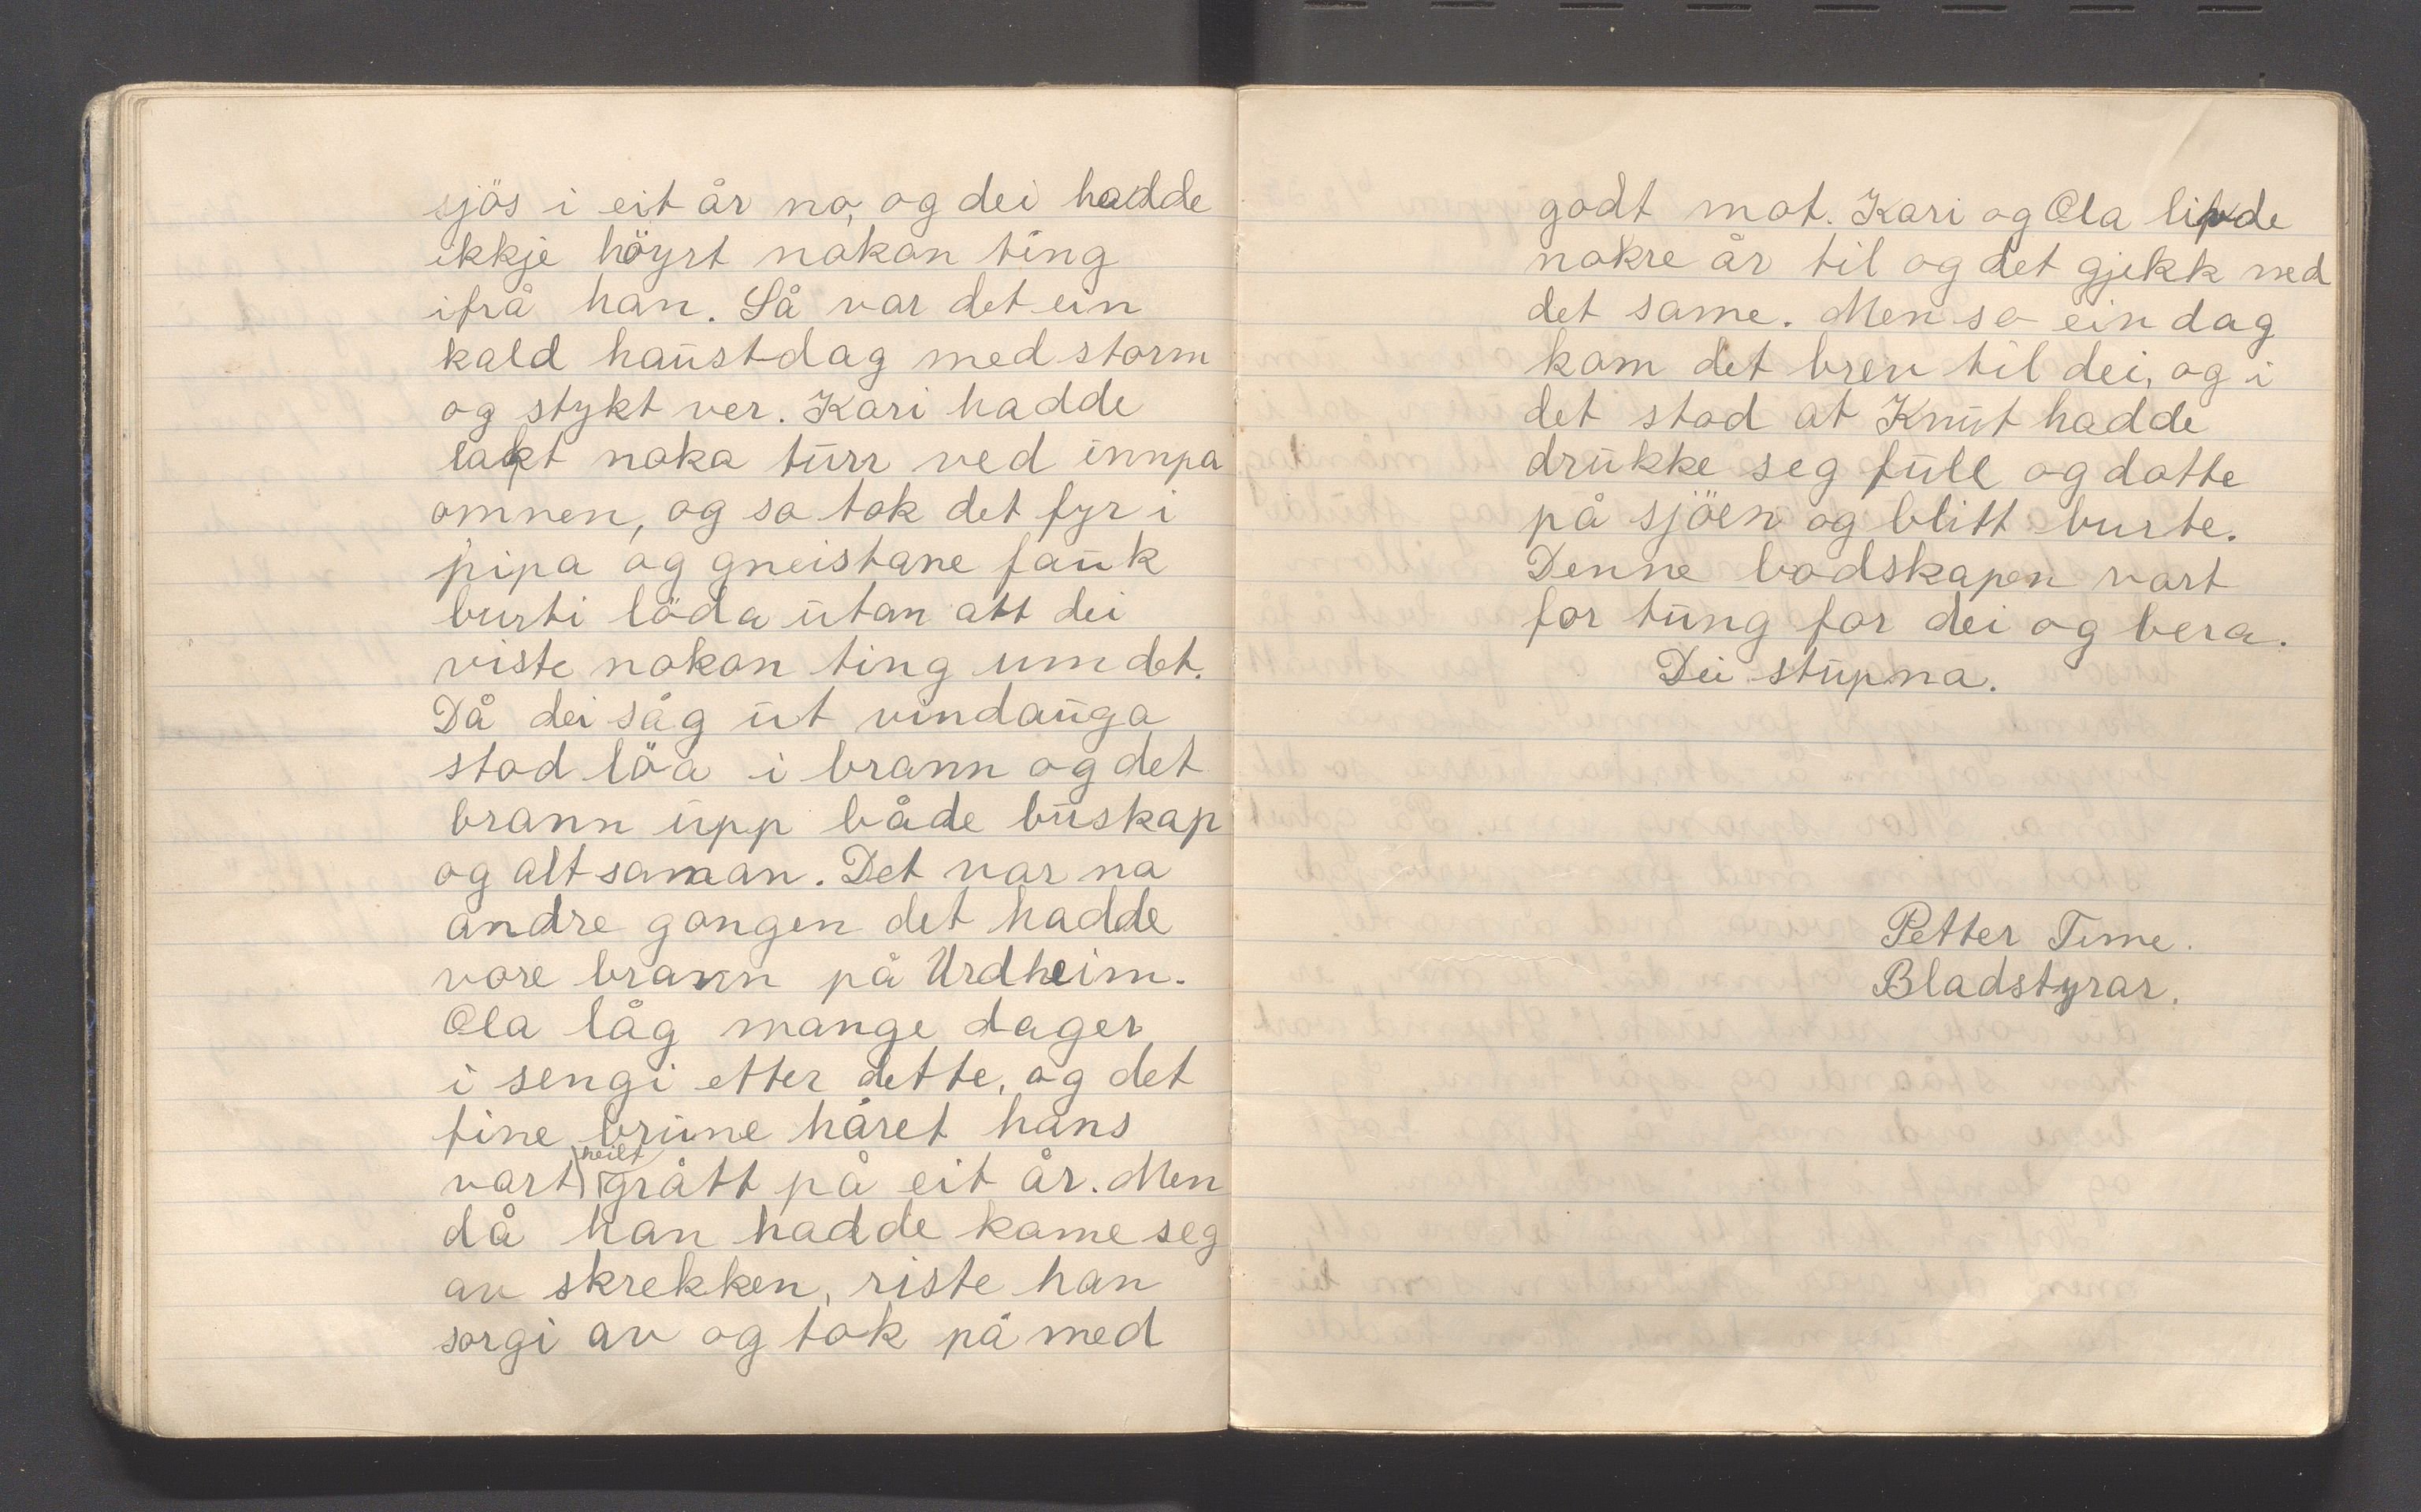 sjös i eit år no, og dei hadde
ikkje höyrt nokon ting
ifrå han. Så var det ein
kald haustdag med storm
og stykt ver. Kari hadde
lakt noko turr ved innpå
omnen, og so tok det fyr i
pipa og gneistane fauk
burti löda utan att dei
viste nokon ting um det.
Då dei såg ut vindauga
stod löa i brann og det
brann upp både buskap
og alt saman. Det var no
andre gongen det hadde
vore brann på Urdheim.
Ola låg mange dager
i sengi etter dette, og det
fine brune håret hans
vart heilt grått på eit år. Men
då han hadde kome seg
av skrekken, riste han
sorgi av og tok på med
godt mot. Kari og Ola livde
nokre år til og det gjekk med
det same. Men so ein dag
kom det brev til dei, og i
det stod at Knut hadde
drukke seg full og dotte
på sjöen og blitt burte.
Denne bodskapen vart
for tung for dei og bera.
Dei stupna.
Petter Time.
Bladstyrar.